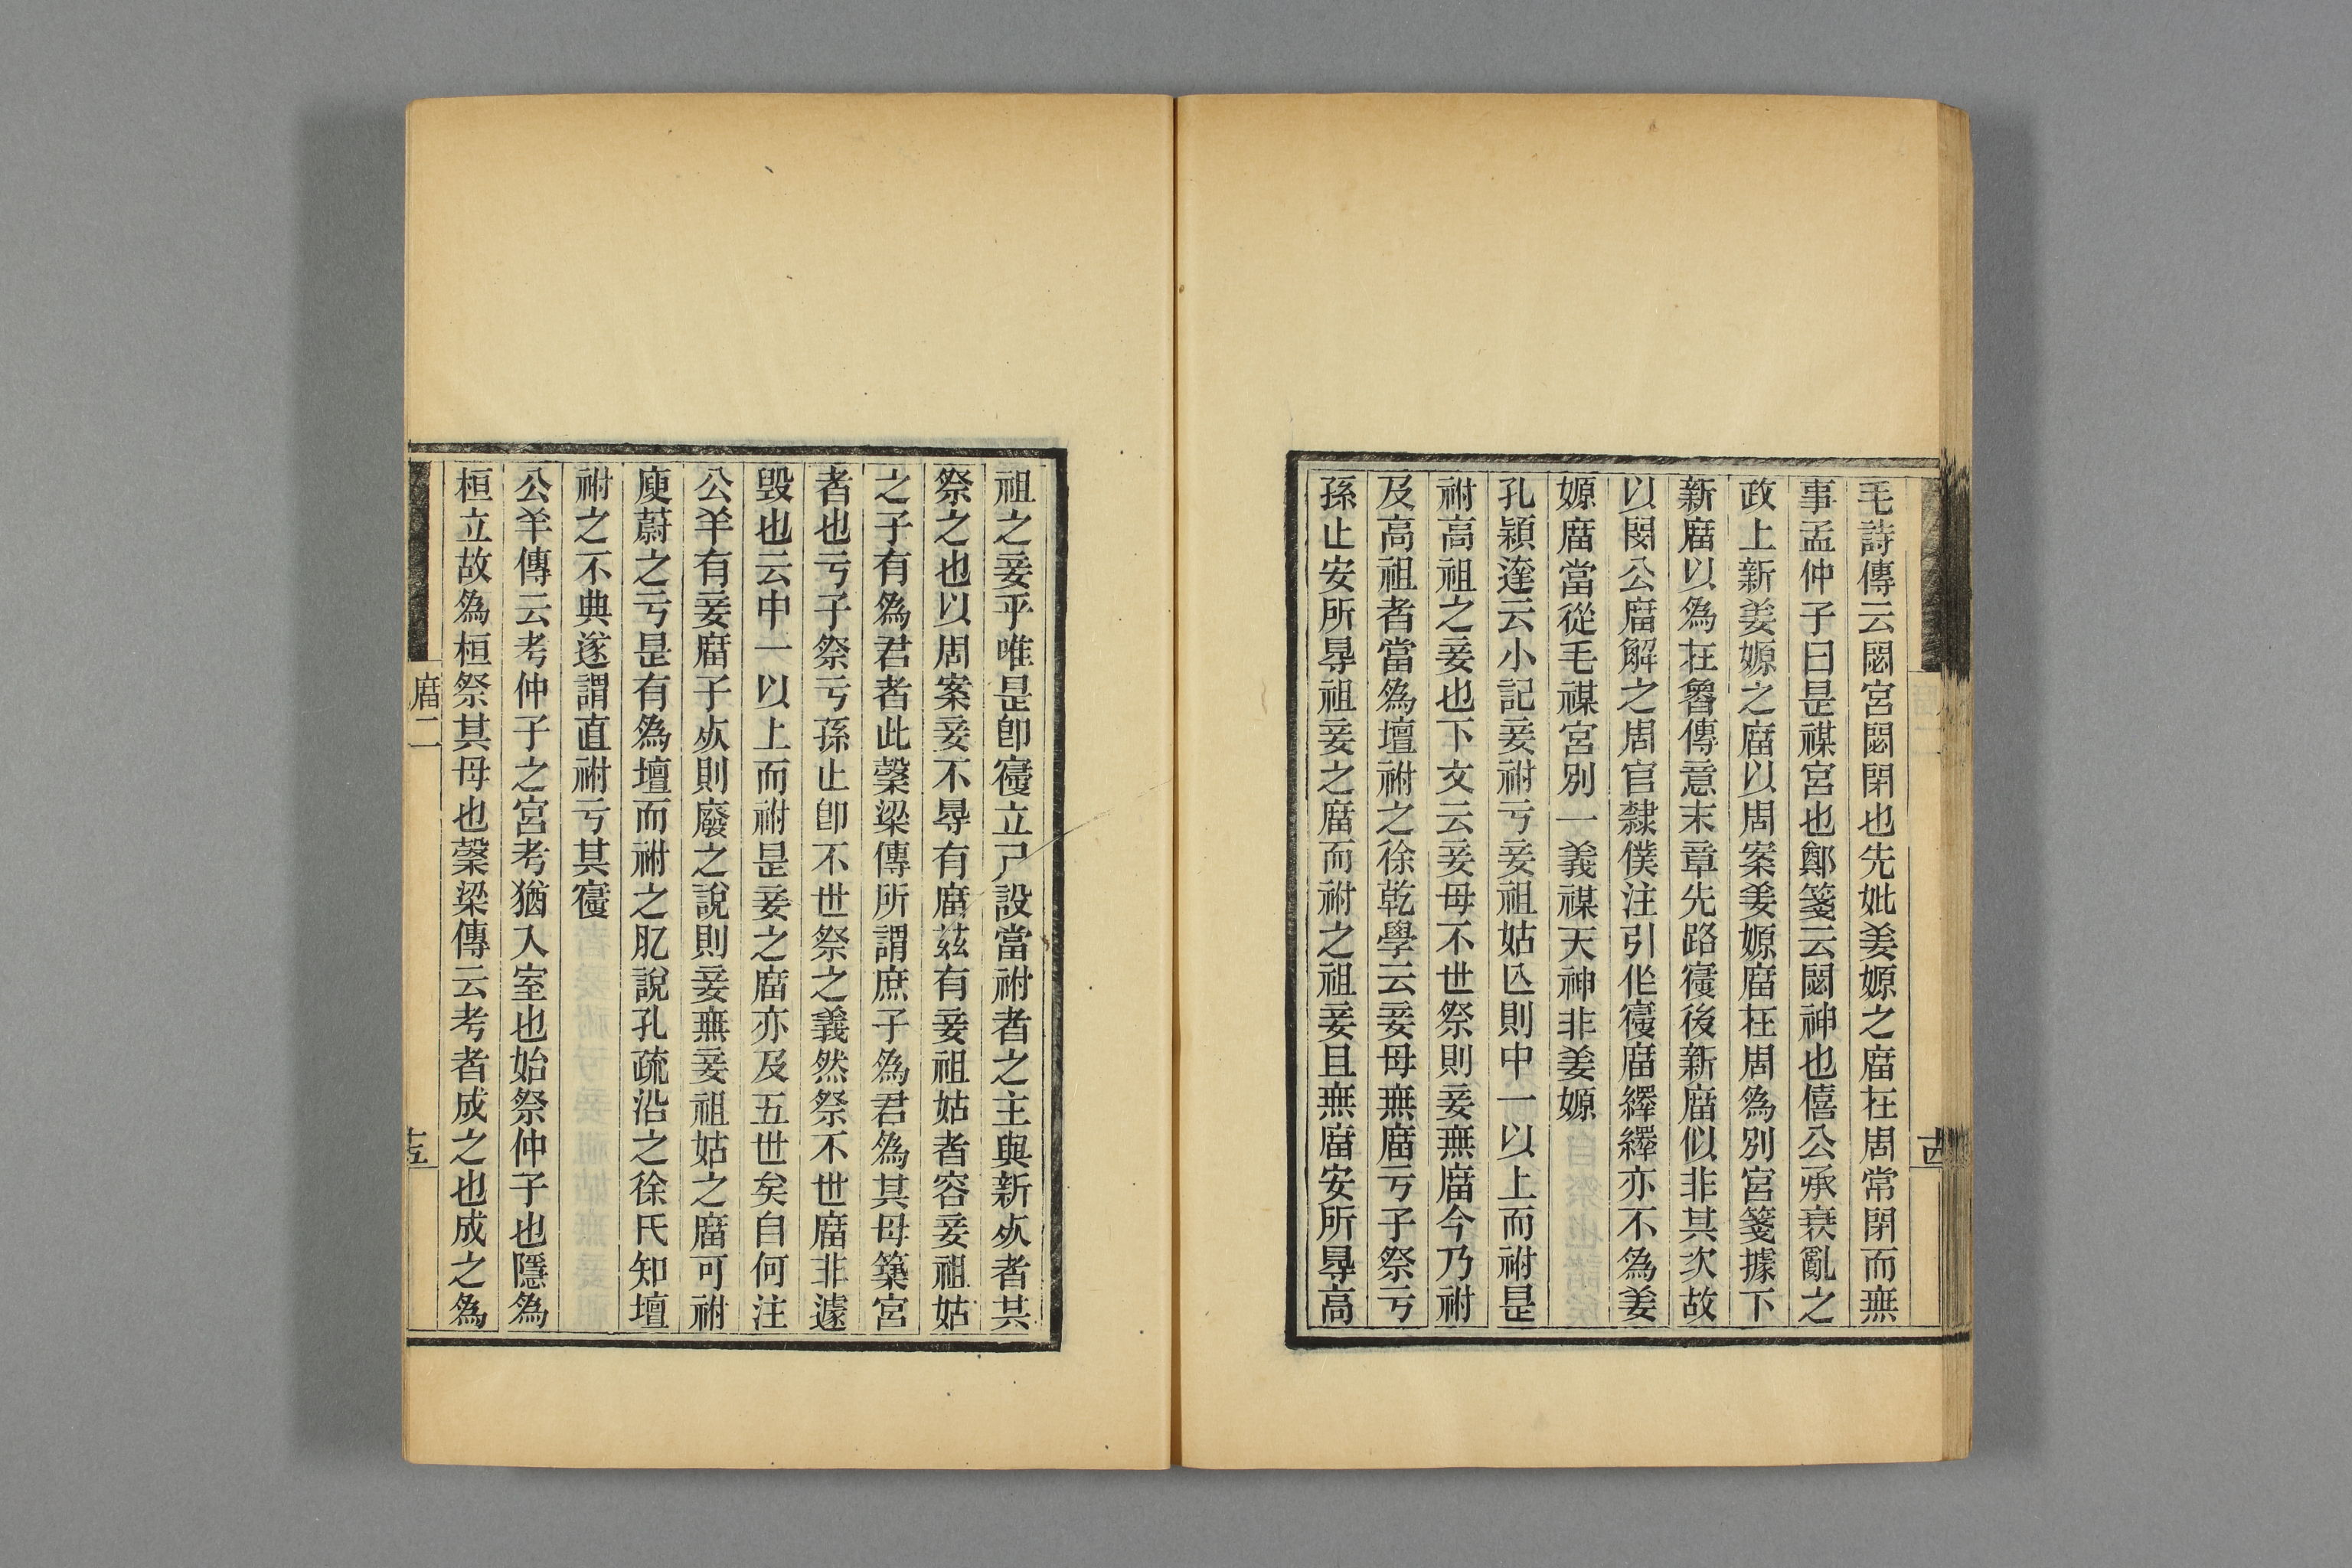 毛詩傳云閟宮閟閉也先妣姜嫄之庿在周常閉而無
事孟仲子曰是禖宮也鄭箋云閟神也僖公承衰亂之
政上新姜嫄之庿以周案姜嫄庿在周為別宮箋據下
新庿以為在魯傳意末章先路寢後新庿似非其次故
以閔公庿解之周官隸僕注引作寢庿繹繹亦不為姜
嫄庿當從毛禖宮別一義禖天神非姜嫄
孔穎達云小記妾祔亏妾祖姑亾則中一以上而祔是
祔高祖之妾也下文云妾母不世祭則妾無庿今乃祔
及高祖者當為壇祔之徐乾學云妾母無庿亏子祭亏
孫止安所㝵祖妾之庿而祔之祖妾且無庿安所㝵高
祖之妾乎唯是卽寑立尸設當祔者之主與新𣦸者共
祭之也以周案妾不㝵有庿茲有妾祖姑者容妾祖姑
之子有為君者此榖梁傳所謂庶子為君為其母築宮
者也亏子祭亏孫止卽不世祭之義然祭不世庿非遽
毀也云中一以上而祔是妾之庿亦及五世矣自何注
公羊有妾庿子𣦸則廢之說則妾無妾祖姑之庿可祔
庾蔚之亏是有為壇而祔之肊說孔疏沿之徐氏知壇
祔之不典遂謂直祔亏其寑
公羊傳云考仲子之宮考猶入室也始祭仲子也隱為
桓立故為桓祭其母也榖梁傳云考者成之也成之為
庿二
十五